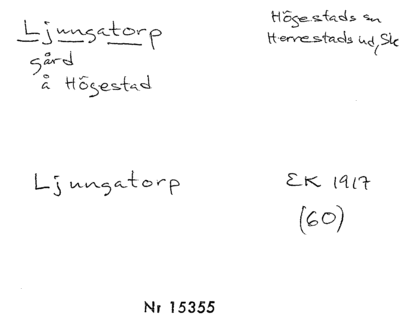 Ljungatorp
gård
å Högestad
Högestads sn
Herrestads hd, Sk
Ljungatorp
EK 1917
(60)
Nr 15355